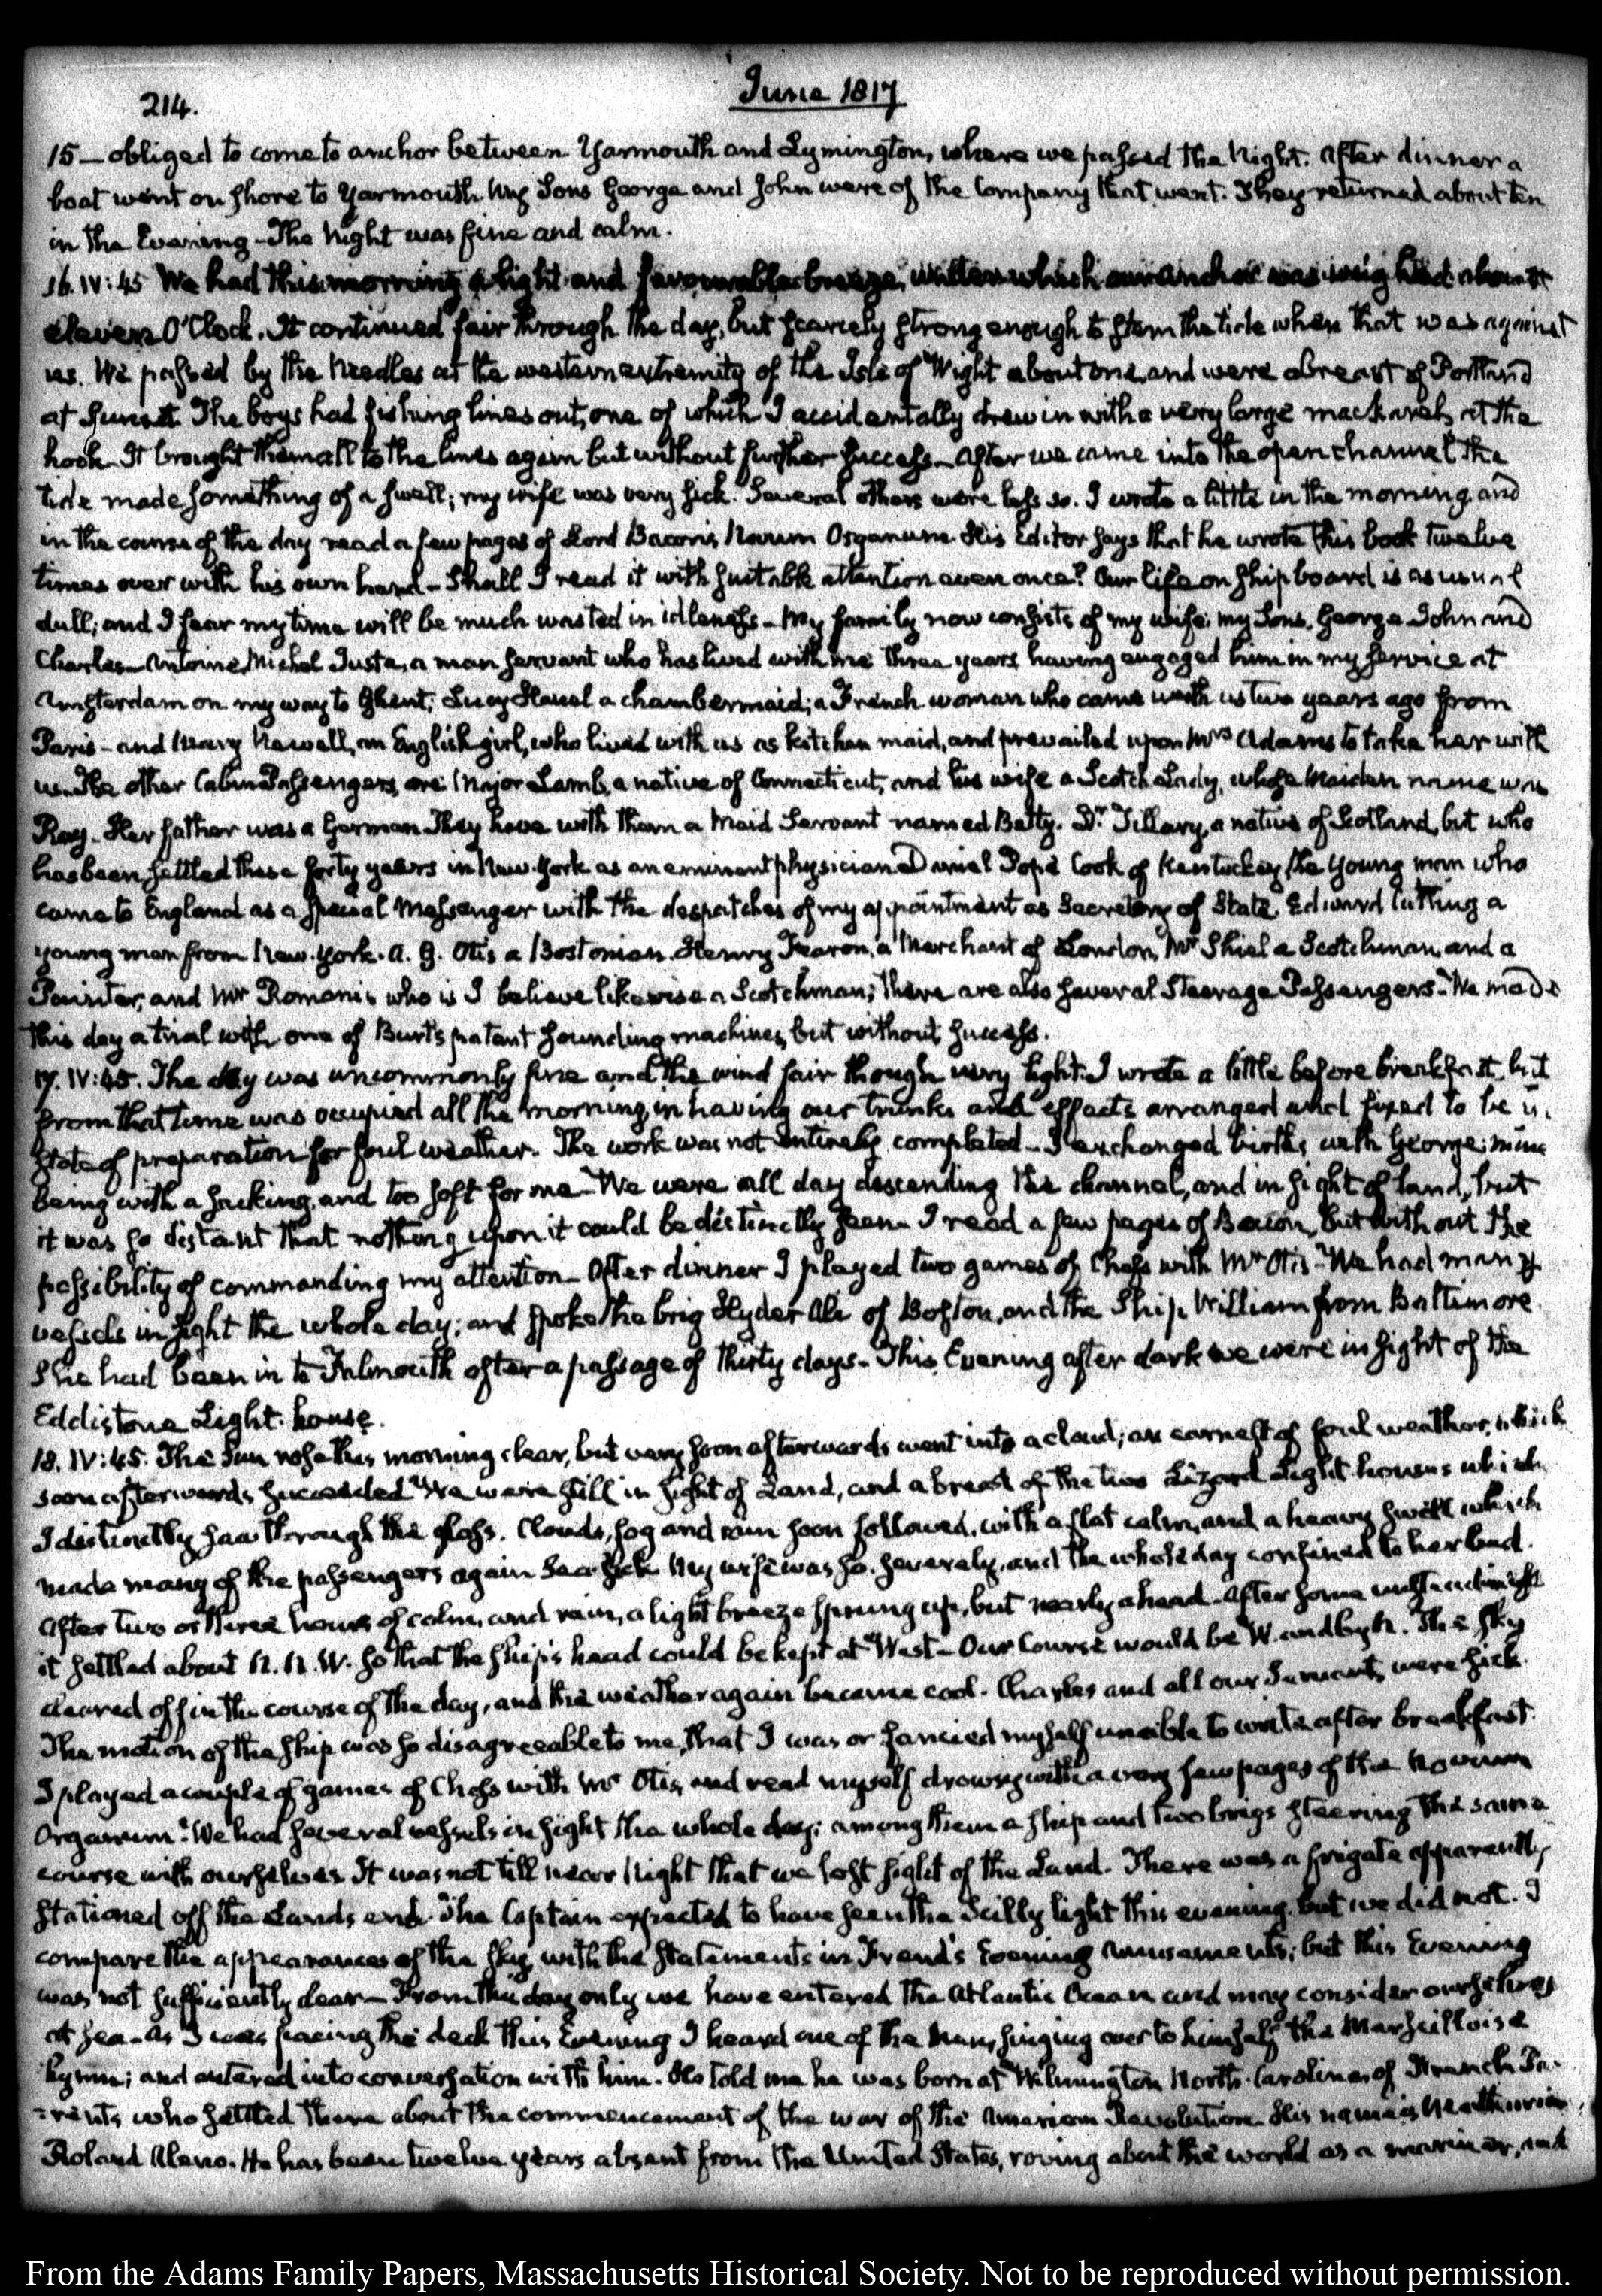 214.
June 1817
15 — obliged to come to anchor between Yarmouth and Lymington, where we passed the Night. After dinner a
boat went on shore to Yarmouth. My Sons George and John were of the Company that went. They returned about ten
in the Evening - The Night was fine and calm.
16. IV:45 We had this morning a light and favourable breeze, with which our anchor was weighed about
eleven O'Clock. It continued fair through the day, but scarcely strong enough to stem the tide when that was against
us. We passed by the Needles at the western extremity of the Isle of Wight about one, and were abreast of Portland
at Sunset. The boys had fishing lines out, one of which I accidentally drew in with a very large mackarel, at the
hook - It brought them all to the lines again but without further success - After we came into the open channel the
tide made something of a swell; my wife was very sick. Several others were less so. I wrote a little in the morning and
in the course of the day read a few pages of Lord Bacon's Novum Organum. His Editor says that he wrote this book twelve
times over with his own hand - Shall I read it with suitable attention even once? Our life on shipboard is as usual
dull; and I fear my time will be much wasted in idleness - My family now consists of my wife; my Sons, George John and
Charles - Antoine Michel Giusta, a man servant who has lived with me three years having engaged him in my service at
Amsterdam on my way to Ghent; Lucy a chambermaid; a French woman who came with us two years ago from
Paris - and Mary Newell, an English girl, who lived with us as kitchen maid, and prevailed upon Mrs Adams to take her with
us. The other Cabin Passengers are Major Lamb, a native of Connecticut, and his wife a Scotch Lady, whose Maiden name was
Ray - Her father was a German They have with them a Maid Servant named Betty. Dr. Tillary, a native of Scotland, but who
has been settled these forty years in New York as an eminent physician Daniel Pope Cook of Kentuckey, the young man who
came to England as a special Messenger with the despatches of my appointment as Secretary of State. Edward Cutting a
young man from New-York. A. G. Otis a Bostonian. Henry Fearon, a Merchant of London, Mr Shiel a Scotchman, and a
Painter, and Mr Romanis who is I believe likewise a Scotchman; there are also several Steerage Passengers - We made
this day a trial with one of Burt's patent sounding machines, but without success.
17. IV:45. The day was uncommonly fine and the wind fair though very light. I wrote a little before breakfast, but
from that time was occupied all the morning, in having our trunks and effects arranged and fixed to be in
state of preparation for foul weather. The work was not entirely completed - I exchanged births with George; mine
being with a sacking, and too soft for me - We were all day descending the channel, and in sight of land, but
it was so distant that nothing upon it could be distinctly seen - I read a few pages of Bacon, but without the
possibility of commanding my attention - After dinner I played two games of Chess with Mr Otis - We had many
vessels in sight the whole day; and spoke the brig Hyder Ali of Boston, and the Ship William from Baltimore.
She had been in to Falmouth after a passage of thirty days - This Evening after dark we were in sight of the
Eddistone Light-house.
18. IV:45. The Sun rose this morning clear, but very soon afterwards went into a cloud; an earnest of foul weather, which
soon afterwards succeeded We were still in sight of Land, and abreast of the two Lizard Light-houses which
I distinctly saw through the glass. Clouds, fog and rain soon followed, with a flat calm, and a heavy swell which
made many of the passengers again Sea-sick My wife was so, severely, and the whole day confined to her bed.
After two or three hours of calm, and rain, a light breeze sprung up, but nearly ahead - After some
it settled about N. N. W. so that the ship's head could be kept at West - Our Course would be W. and by N. The sky
cleared off in the course of the day, and the weather again became cool - Charles and all our Servants were sick.
The motion of the ship was so disagreeable to me, that I was or fancied myself unable to write after breakfast.
I played a couple of games of Chess with Mr Otis, and read myself drowsy with a very few pages of the Novum
Organum. We had several vessels in sight the whole day; among them a ship and two brigs steering the same
course with ourselves. It was not till near Night that we lost sight of the Land. There was a frigate apparently
stationed off the Lands end. The Captain expected to have seen the Scilly light this evening, but we did not. I
compare the appearances of the sky with the statements in Frend's Evening Amusements; but this Evening
was not sufficiently clear - From this day only we have entered the Atlantic Ocean and may consider ourselves
at sea - As I was pacing the deck this Evening I heard one of the Men, singing over to himself the Marseilloise
hymn; and entered into conversation with him. He told me he was born at Wilmington North-Carolina, of French Pa-
=rents, who settled there about the commencement of the war of the American Revolution - His name is
Roland He has been twelve years absent from the United States, roving about the world as a mariner, and
From the Adams Family Papers, Massachusetts Historical Society. Not to be reproduced without permission.